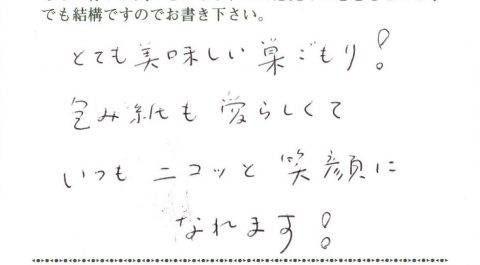 でも結構ですのでお書き下さい。
とても美味しい巣ごもり!
包み紙も愛らしくて
いつもニコッと笑顔に
なれます!